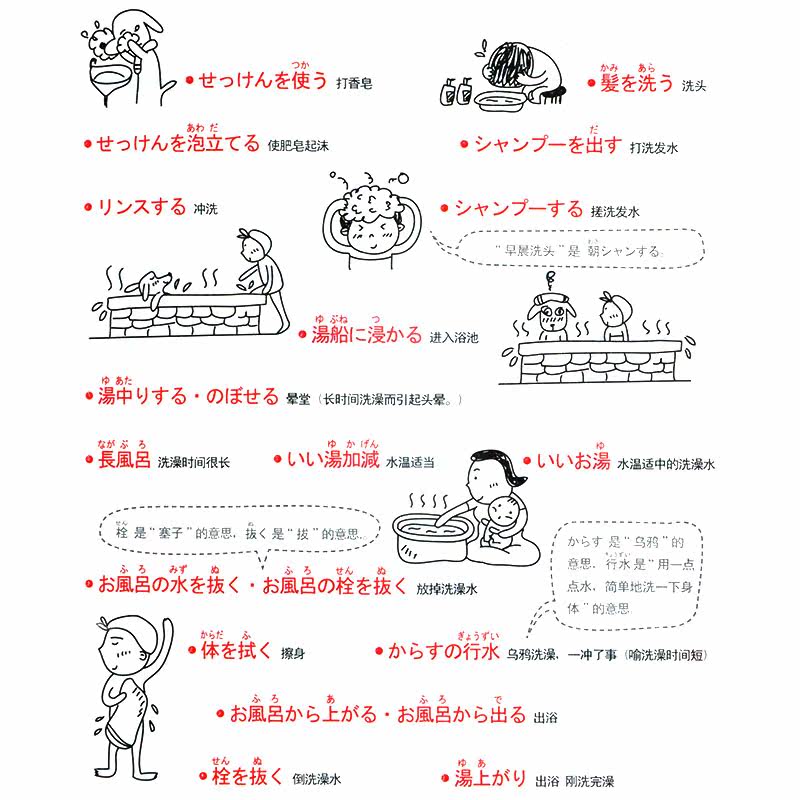 せっけんを使う 打香皂
髪を洗う 洗头
せっけんを泡立てる 使肥皂起沫
シャンプーを出す 打洗发水
リンスする 冲洗
シャンプーする 搓洗发水
“早晨洗头”是 朝シャンする。
湯船に浸かる 进入浴池
湯中りする・のぼせる 晕堂（长时间洗澡而引起头晕。）
長風呂 洗澡时间很长
いい湯加減 水温适当
いいお湯 水温适中的洗澡水
栓 是“塞子”的意思，抜く是“拔”的意思。
お風呂の水を抜く・お風呂の栓を抜く 放掉洗澡水
からす 是“乌鸦”的
意思，行水是“用一点
点水，简单地洗一下身
体”的意思
体を拭く 擦身
からすの行水 乌鸦洗澡，一冲了事（喻洗澡时间短）
お風呂から上がる・お風呂から出る 出浴
栓を抜く 倒洗澡水
湯上がり 出浴 刚洗完澡